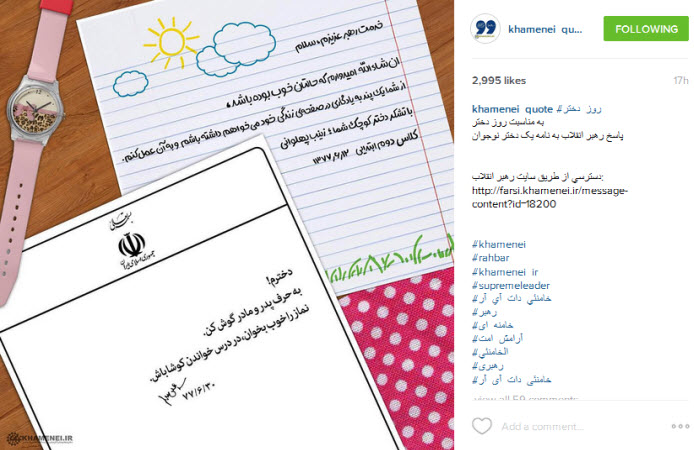 خدمت رهبر عزیزم، سلام
ان شاءالله امیدوارم که حالتان خوب بوده باشد،
از شما یک پند به یادگاری در صفحه‌ی زندگی خود می‌خواهم داشته باشم و به آن عمل کنم.
با تشکر دختر کوچک شما: زینب پهلوانی
کلاس دوم ابتدایی ۱۳۷۷,۶,۱۲
جمهوری اسلامی ایران
دخترم!
به حرف پدر و مادر گوش کن.
نماز را خوب بخوان، در درس خواندن کوشا باش.
۷۷/۶/۳۰
KHAMENEI.IR
99
khamenei_qu...
FOLLOWING
2,995 likes
17h
khamenei_quote #روز_دختر
به مناسبت روز دختر
پاسخ رهبر انقلاب به نامه یک دختر نوجوان
دسترسي از طریق سایت رهبر انقلاب:
http://farsi.khamenei.ir/message-
content?id=18200
#khamenei
#rahbar
#khamenei_ir
#supremeleader
#خامنئي_دات_آي_آر
#رهبر
#خامنه_ای
#آرامش_امت
#الخامنئي
#رهبری
#خامنئی_دات_آی_آر
view all 59 comments
Add a comment...